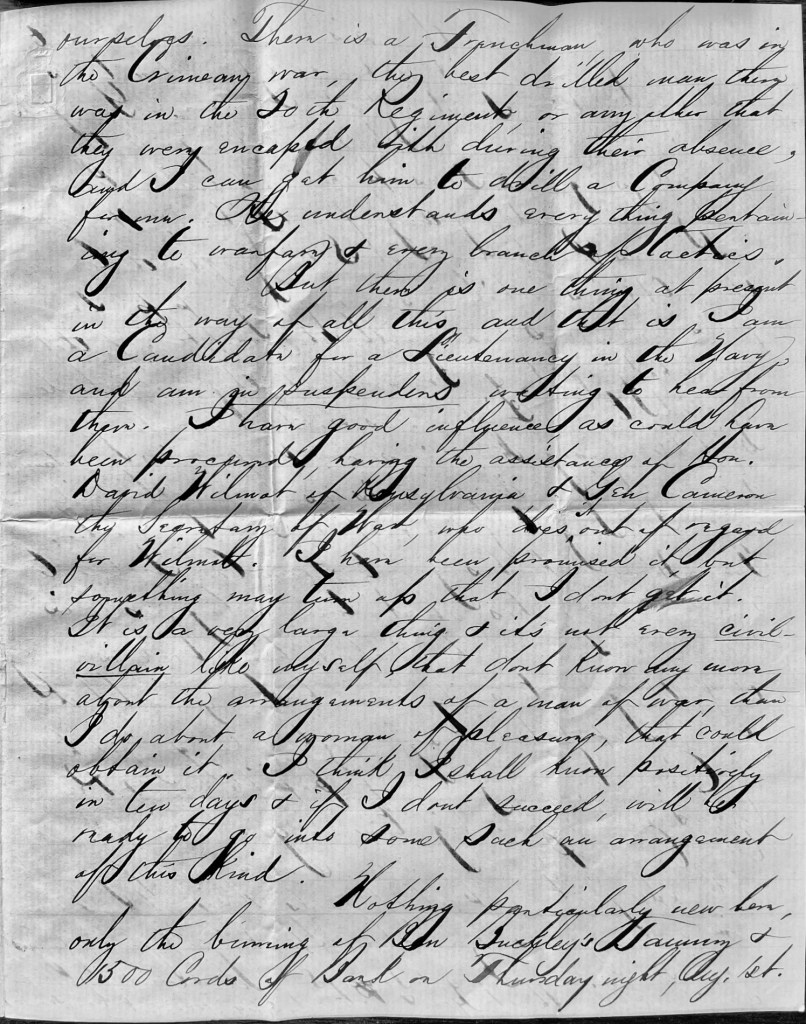 ourselves. There is a Frenchman who was in
the Crimean war, the best drilled man there
was in the 20th Regiment, or any other that
they were encamp'd with during their absence,
and I can get him to drill a Company
for me. He understands every thing pertain-
ing to warfare & every branch of tactics.
But there is one thing at present
in the way of all this, and that is I am
a Candidate for a Lieutenancy in the Navy,
and am in suspenders waiting to hear from
them. I have good influence as could have
been procured, having the assistance of Hon.
David Wilmot of Pennsylvania & Gen Cameron
the Secretary of War, who does out of regard
for Wilmot. I have been promised it but
something may turn up that I dont get it.
It is a very large thing & it's not every civil-
villain like myself, that dont know any more
about the arrangements of a man of war, than
I do about a woman of pleasure, that could
obtain it. I think I shall know positively
in ten days & if I dont succeed, will be
ready to go into some such an arrangement
of this Kind.
Nothing particularly new here,
only the burning of Ben Buckley's Tannery &
1500 Cords of Bark on Thursday night, Aug. 1st.